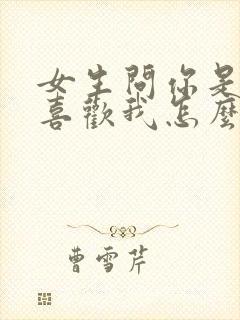 女生問你是
喜歡我怎麼
曹雪芹